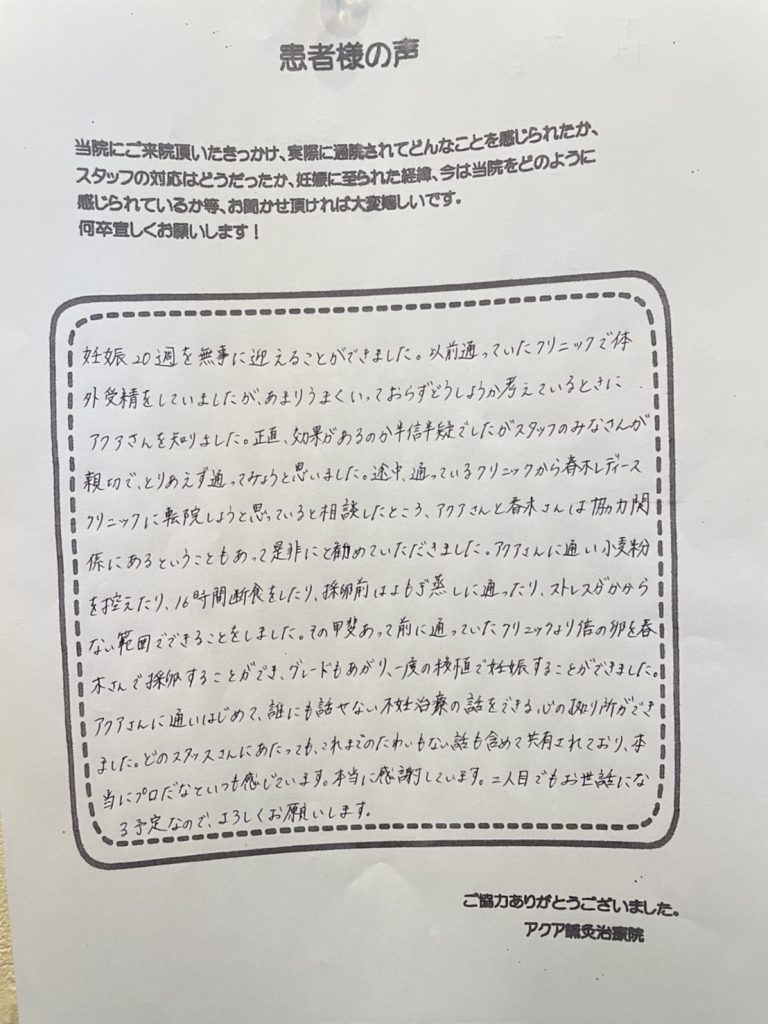 患者様の声
当院にご来院頂いたきっかけ、実際に通院されてどんなことを感じられたか、
スタッフの対応はどうだったか、妊娠に至られた経緯、今は当院をどのように
感じられているか等、お聞かせ頂ければ大変嬉しいです。
何卒宜しくお願いします！
妊娠20週を無事に迎えることができました。以前通っていたクリニックで体
外受精をしていましたが、あまりうまくいっておらずどうしようか考えているときに
アクアさんを知りました。正直、効果があるのか半信半疑でしたがスタッフのみなさんが
親切で、とりあえず通ってみようと思いました。途中、通っているクリニックから春木レディース
クリニックに転院しようと思っていると相談したところ、アクアさんと春木さんは協力関
係にあるということもあって是非にと勧めていただきました。アクアさんに通い小麦粉
を控えたり、16時間断食をしたり、採卵前はよもぎ蒸しに通ったり、ストレスがかから
ない範囲でできることをしました。その甲斐あって前に通っていたクリニックより倍の卵を春
木さんで採卵することができ、グレードもあがり、一度の移植で妊娠することができました。
アクアさんに通いはじめて、誰にも話せない不妊治療の話をできる、心の拠り所ができ
ました。どのスタッフさんにあたっても、これまでのたわいもない話も含めて共有されており、本
当にプロだなといつも感じています。本当に感謝しています。二人目でもお世話にな
る予定なので、よろしくお願いします。
ご協力ありがとうございました。
アクア鍼灸治療院